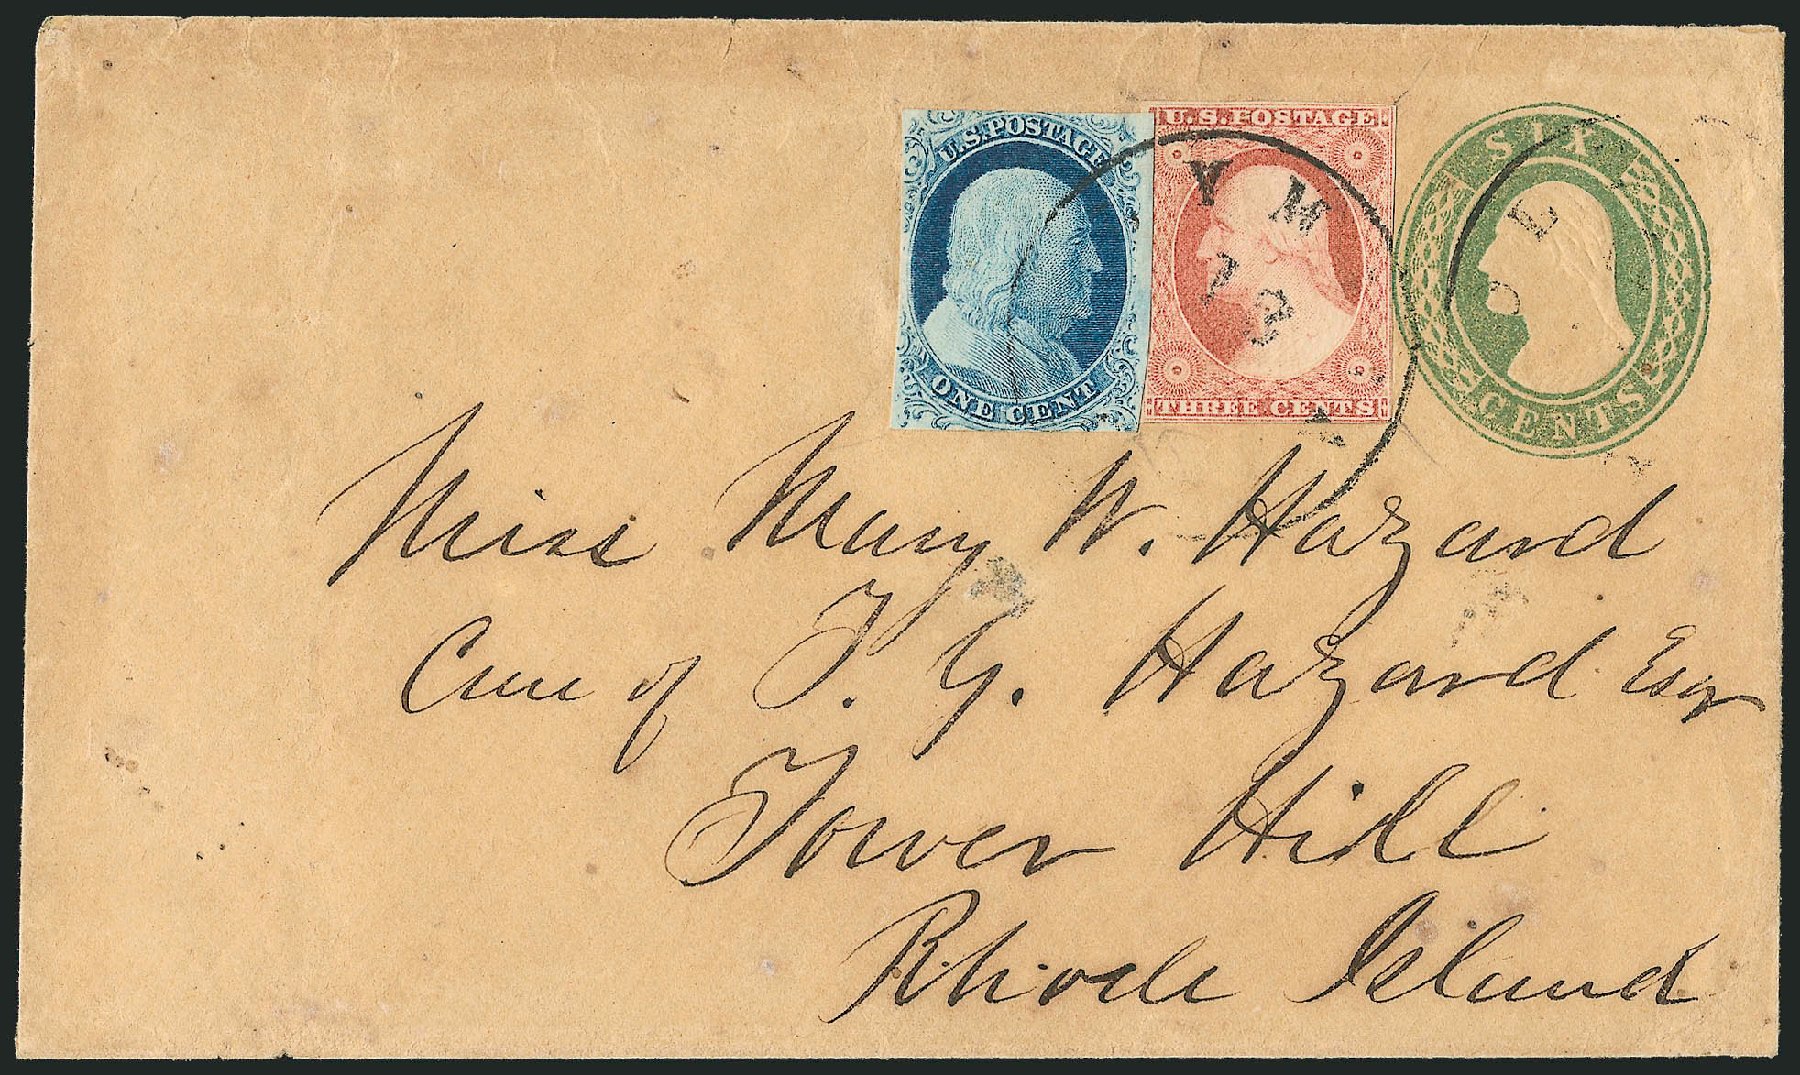 U.S. POSTAGE
ONE CENT
U.S. POSTAGE
THREE CENTS
SIX
CENTS
OLYM
Miss Mary W. Hazard
Care of T. G. Hazard Esqr
Tower Hill
Rhode Island